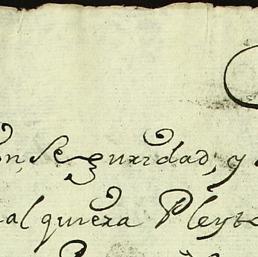 on, Seguridad, y
al quiera Pleyto